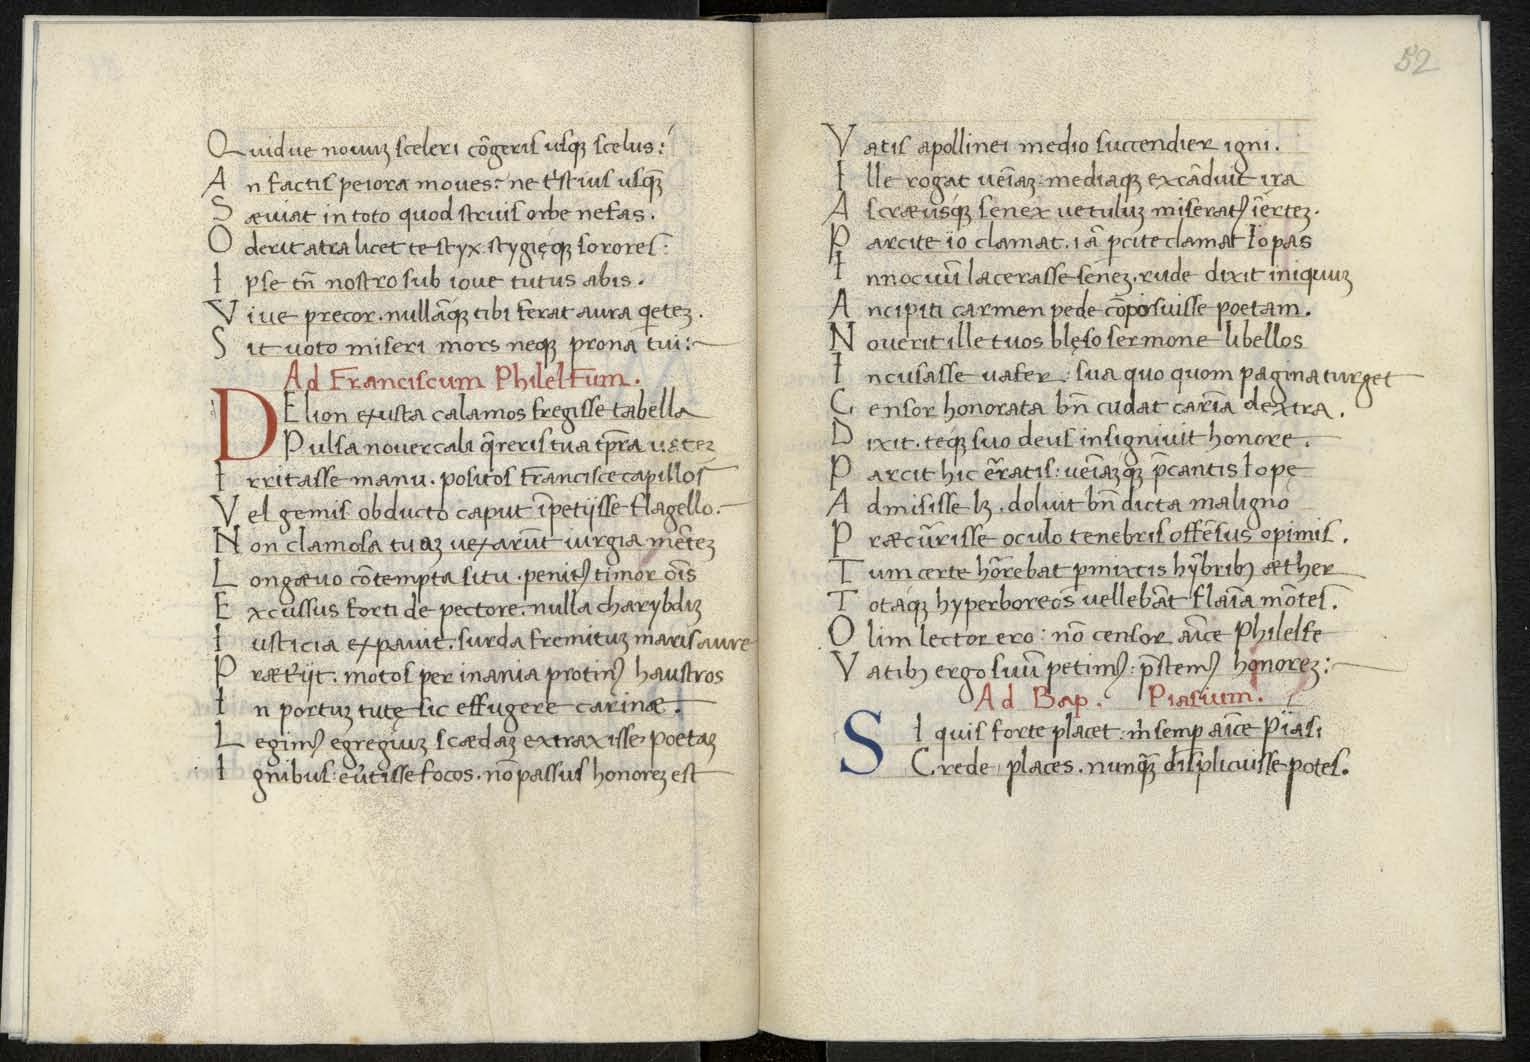 Quidue nouuȝ sceleri cōgeris usqȝ scelus:
An factis peiora moues: ne tristius usqȝ
Sæuiat in toto quod struis orbe nefas.
Oderit atra licet te styx. stygięqȝ sorores:
Ipse tn̄ nostro sub ioue tutus abis.
Viue precor. nullāqȝ tibi ferat aura qietez.
Sit uoto miseri mors neqȝ prona tui:
Ad Franciscum Philelfum.
DElion exusta calamos fregisse tabella
Pulsa nouercali q̄reris tua tp̄ra
Irritasse manu. positos Francisce capillos
Vel gemis obducto caput īpetijsse flagello.
Non clamosa tuaz uexarūt iurgia mētez
Longæuo cōtempta situ. penitꝰ timor oīs
Excussus forti de pectore. nulla charybdiz
Iusticia expauit. surda fremituz maris aure
Præterijt. motos per inania protinꝰ haustros
In portuz tutę sic effugere carinæ.
Legimꝰ egregiuz scædaz extraxisse poetaz
Ignibus: euertisse focos. nō passus honorez est
52
Vatis apollinei medio succendier igni.
Ille rogat ueīaz: mediaqȝ excādiuit ira
Ascræusqȝ senex uetuluz miseratꝰ īertez.
Parcite io clamat. iā ꝑcite clamat Iopas
Innocuū lacerasse senez. rude dixit iniquuz
Ancipiti carmen pede cōposuisse poetam.
Nouerit ille tuos blęso sermone libellos
Incusasse uafer: sua quo quom pagina turget
Censor honorata bn̄ cudat carīa dextra.
Dixit. teqȝ suo deus insigniuit honore.
Parcit hic erratis: ueīazqȝ p̄cantis Iopę
Admisisse lȝ. doluit bn̄ dicta maligno
Præcurrisse oculo tenebris offēsus opimis.
Tum certe horrebat ꝑmixtis hȳbribȝ æther
Totaqȝ hyperboreos uellebāt flaīa mōtes.
Olim lector ero: nō censor aīce Philelfe
Vatibȝ ergo suū petimꝰ: p̄stemꝰ honorez:
Ad Bap. Piasium.
SI quis forte placet: m̄ semp aīce Piasi
Crede places. nunqȝ displicuisse potes.